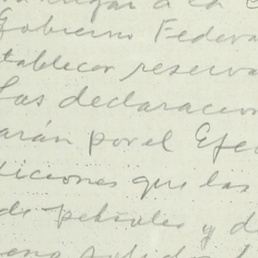 lugar a la
Gobierno Federa
tablecer reserva
Las declaracion
arán por el Ejec
diciones que las
de petróleo y d